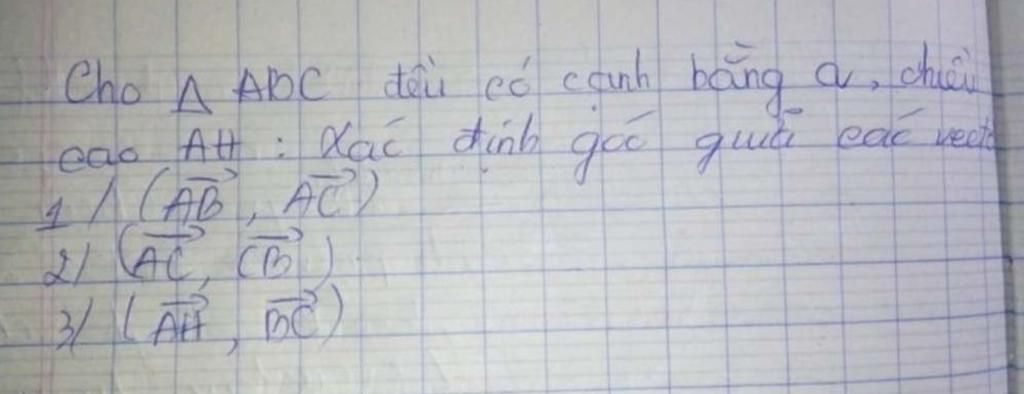 Cho Δ ABC đều có cạnh bằng a, chiều
cao AH : Xác định góc giữa các vectơ
1/ (\overrightarrow{AB}, \overrightarrow{AC})
2/ (\overrightarrow{AC}, \overrightarrow{CB})
3/ (\overrightarrow{AH}, \overrightarrow{BC})